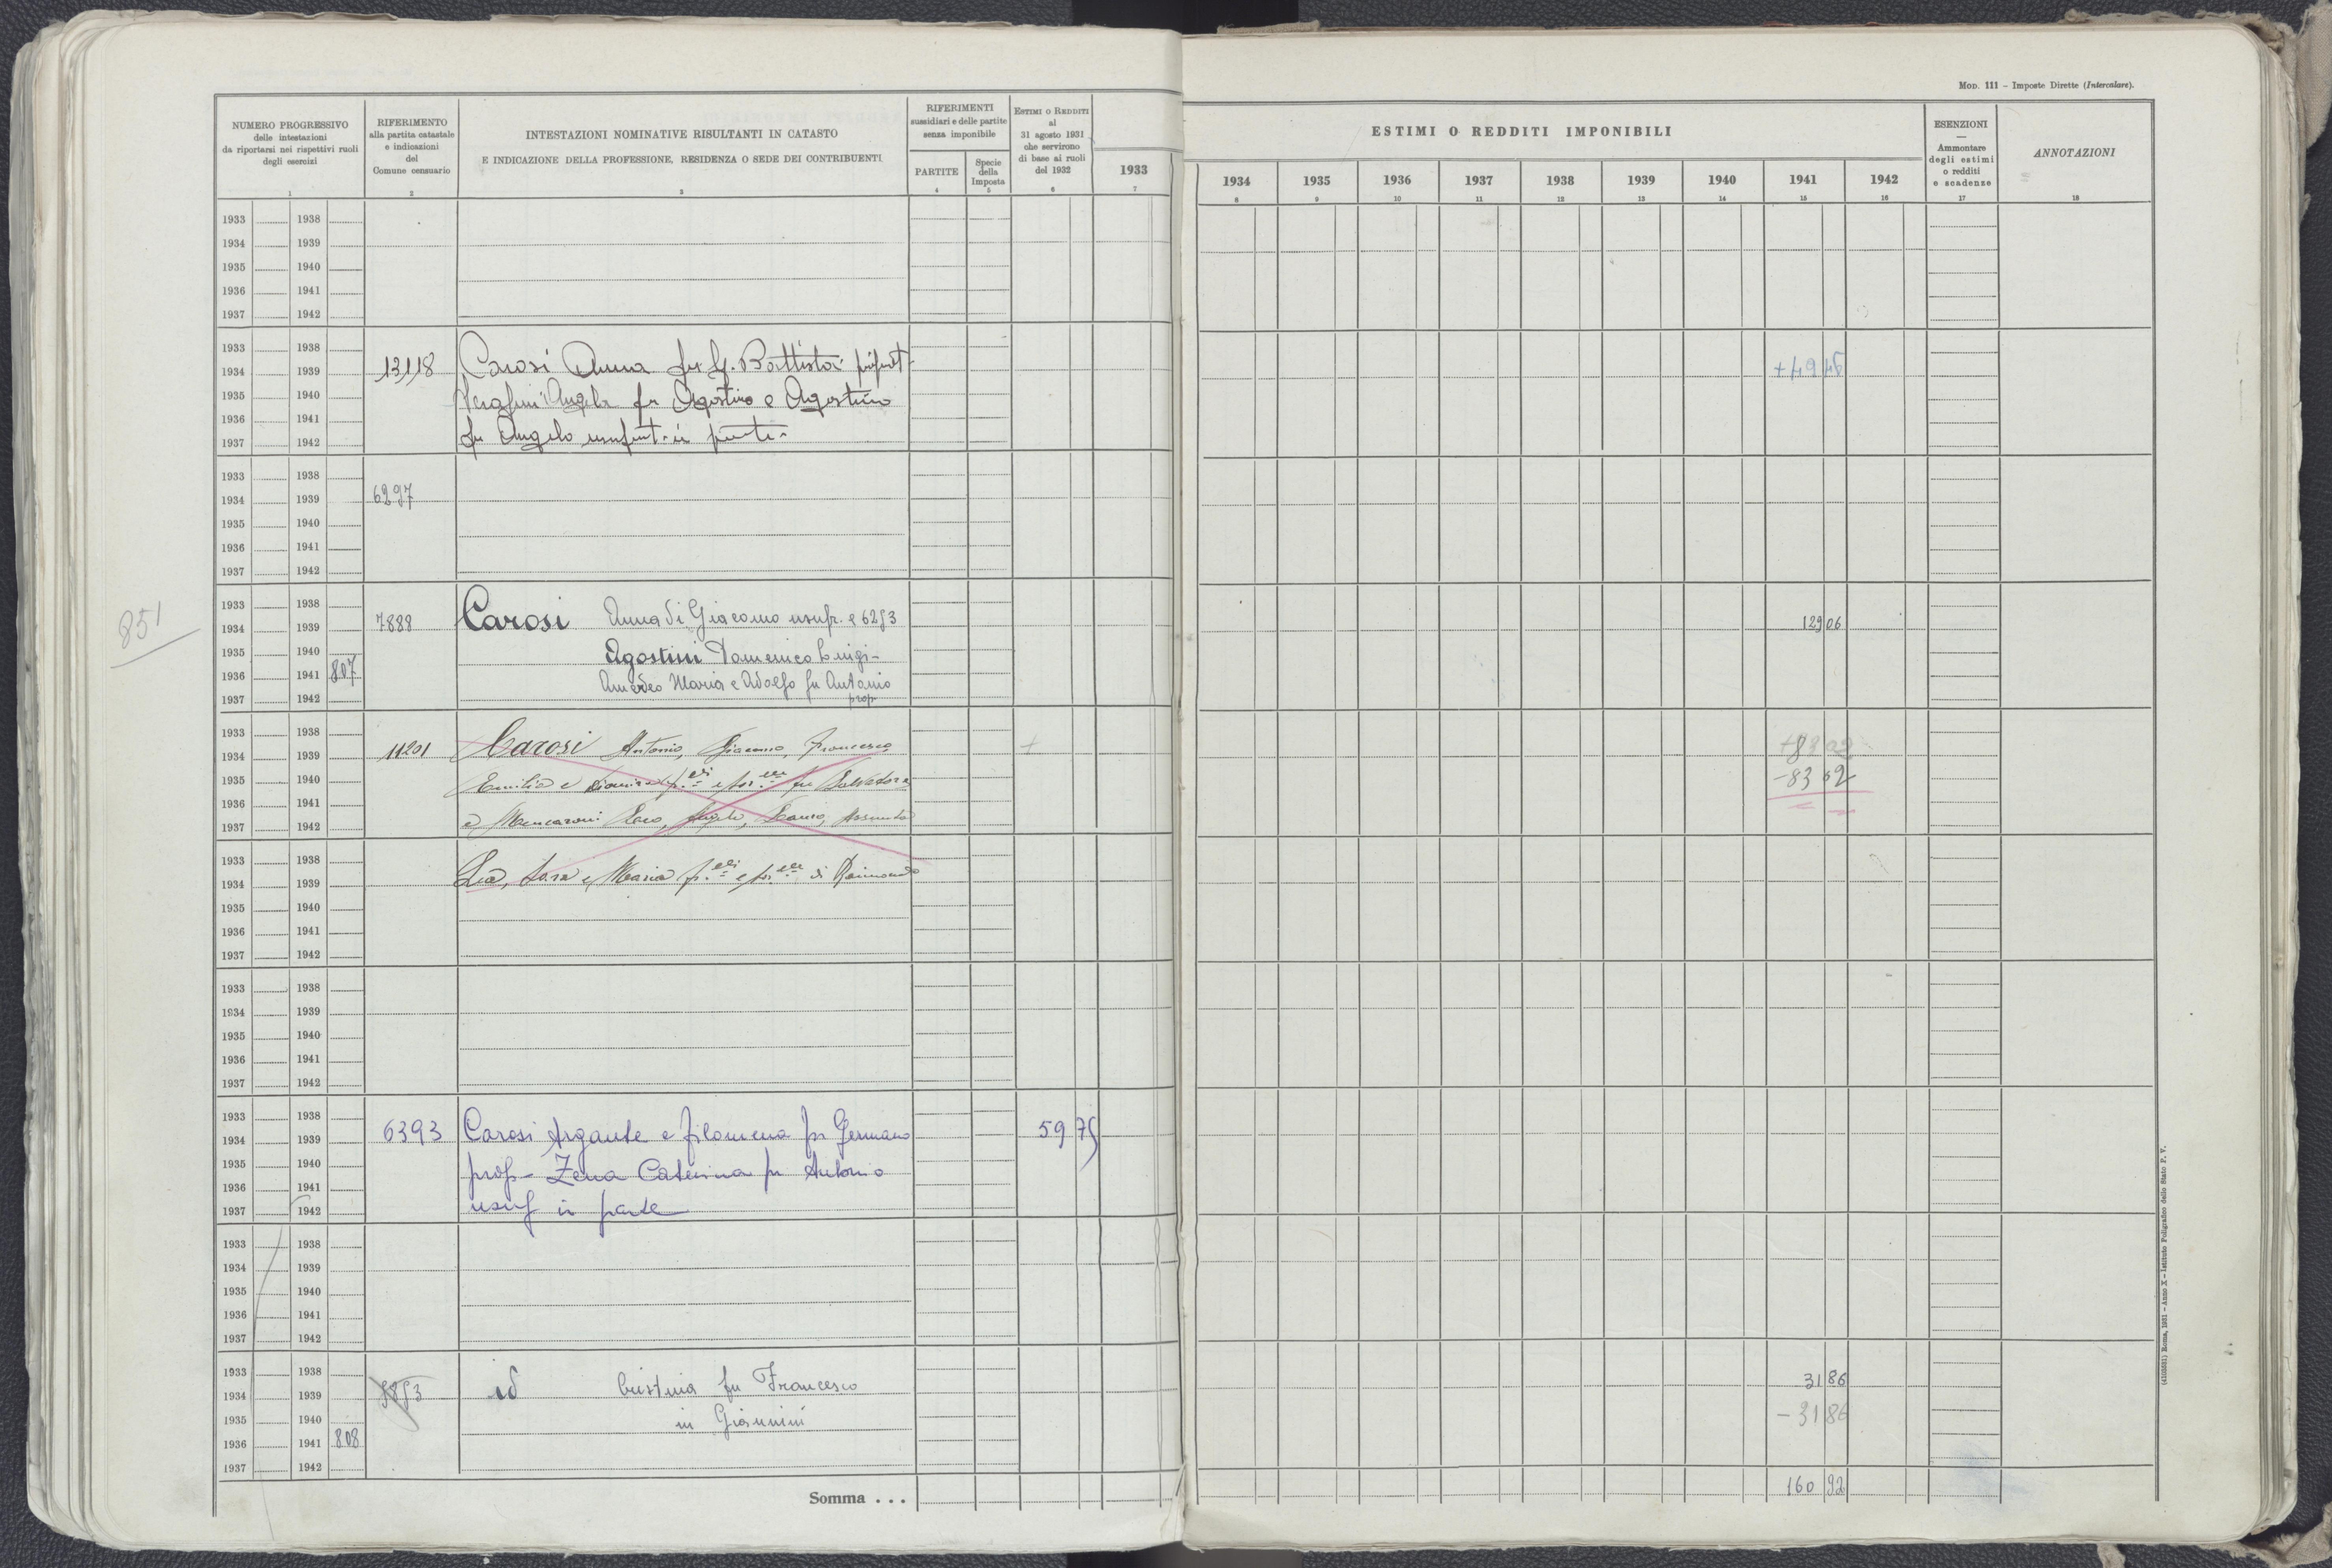 MOD. 111 – Imposte Dirette (Intercalare).
NUMERO PROGRESSIVO
delle intestazioni
da riportarsi nei rispettivi ruoli
degli esercizi
1
RIFERIMENTO
alla partita catastale
e indicazioni
del
Comune censuario
2
INTESTAZIONI NOMINATIVE RISULTANTI IN CATASTO
E INDICAZIONE DELLA PROFESSIONE, RESIDENZA O SEDE DEI CONTRIBUENTI
3
RIFERIMENTI
sussidiari e delle partite
senza imponibile
PARTITE
4
Specie
della
Imposta
5
ESTIMI O REDDITI
al
31 agosto 1931
che servirono
di base ai ruoli
del 1932
6
1933
7
ESTIMI O REDDITI IMPONIBILI
1934 1935 1936 1937 1938 1939 1940 1941 1942
8 9 10 11 12 13 14 15 16
ESENZIONI
—
Ammontare
degli estimi
o redditi
e scadenze
17
ANNOTAZIONI
18
1933 1938
1934 1939
1935 1940
1936 1941
1937 1942
1933 1938
1934 1939 13118 Carosi Anna fu G. Battista +49
1935 1940 Angela fu Agostino e Agostino
1936 1941
1937 1942 fu Angelo usufrut. in parte
1933 1938
1934 1939 6297
1935 1940
1936 1941
1937 1942
1933 1938
1934 1939 7888 Carosi Anna di Giacomo usufr. e 6293 129 06
1935 1940 Agostini Domenico Luigi-
1936 1941 807 Amedeo Maria e Adolfo fu Antonio
1937 1942 prop
1933 1938
1934 1939 11201 Carosi Antonio, Giacomo, Francesco, +
1935 1940 Emilia e fu Salvatore -83 02
1936 1941
1937 1942 e Mencaroni Angelo, Assunta
1933 1938
1934 1939 Lea, Sara e Maria di Raimondo
1935 1940
1936 1941
1937 1942
1933 1938
1934 1939
1935 1940
1936 1941
1937 1942
1933 1938
1934 1939 6393 Carosi Argante e filomena fu Germano 59 75
1935 1940 prop- Zena Caterina fu Antonio
1936 1941
1937 1942 usuf in parte
1933 1938
1934 1939
1935 1940
1936 1941
1937 1942
1933 1938 31 86
1934 1939 id Cristina fu Francesco
1935 1940 in Giannini - 31 86
1936 1941 808
1937 1942
Somma . . . 160 92
851
(4105661) Roma, 1931 – Anno X – Istituto Poligrafico dello Stato P. V.